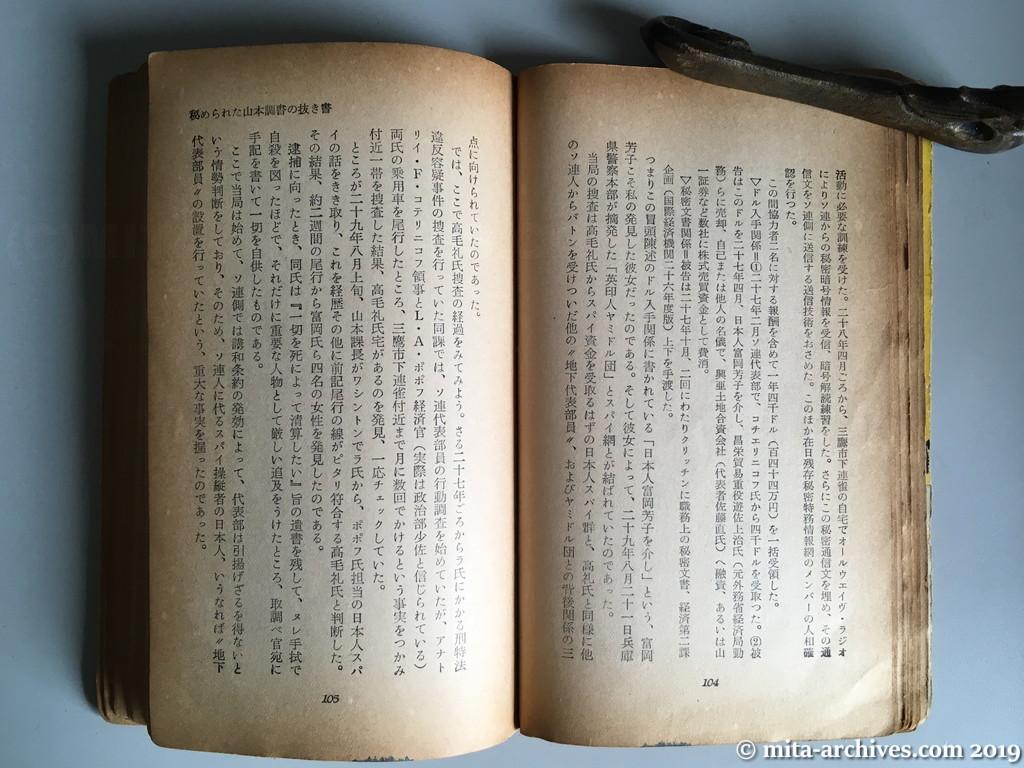 活動に必要な訓練を受けた。二十八年四月ころから、三鷹市下連雀の自宅でオールウェイヴ・ラジオ
によりソ連からの秘密暗号情報を受信、暗号解読練習をした。さらにこの秘密通信文を埋め、その通
信文をソ連側に送信する送信技術をおさめた。このほか在日残存秘密特務情報網のメンバーの人相確
認を行つた。
この間協力者二名に対する報酬を含めて一年四千ドル（百四十四万円）を一括受領した。
▽ドル入手関係＝①二十七年二月ソ連代表部で、コチエリニコフ氏から四千ドルを受取つた。②被
告はこのドルを二十七年四月、日本人富岡芳子を介し、昌栄貿易重役遊佐上治氏（元外務省経済局勤
務）らに売却、自己または他人の名儀で、興亜土地合資会社（代表者佐藤直氏）へ融資、あるいは山
一証券など数社に株式売買資金として費消。
▽秘密文書関係＝被告は二十七年十月、二回にわたりクリッチンに職務上の秘密文書、経済第二課
企画（国際経済機関二十六年度版）上下を手渡した。
つまりこの冒頭陳述のドル入手関係に書かれている「日本人富岡芳子を介し」という、富岡
芳子こそ私の発見した彼女だったのである。そして彼女によって、二十九年八月二十一日兵庫
県警察本部が摘発した「英印人ヤミドル団」とスパイ網とが結ばれていたのであった。
当局の捜査は高毛礼氏からスパイ資金を受取るはずの日本人スパイ群と、高礼氏と同様に他
のソ連人からバトンを受けついだ他の〝地下代表部員〟、およびヤミドル団との背後関係の三
104
秘められた山本調書の抜き書
点に向けられていたのであった。
では、ここで高毛礼氏捜査の経過をみてみよう。さる二十七年ごろからラ氏にかかる刑特法
違反容疑事件の捜査を行っていた同課では、ソ連代表部員の行動調査を始めていたが、アナト
リイ・F・コテリニコフ領事とL・A・ポポフ経済官（実際は政治部少佐と信じられている）
両氏の乗用車を尾行したところ、三鷹市下連雀付近まで月に数回でかけるという事実をつかみ
付近一帯を捜査した結果、高毛礼氏宅があるのを発見、一応チェックしていた。
ところが二十九年八月上旬、山本課長がワシントンでラ氏から、ポポフ氏担当の日本人スパ
イの話をきき取り、これを経歴その他に前記尾行の線がピタリ符合する高毛礼氏と判断した。
その結果、約二週間の尾行から富岡氏ら四名の女性を発見したのである。
逮捕に向ったとき、同氏は『一切を死によって清算したい』旨の遺書を残して、ヌレ手拭で
自殺を図ったほどで、それだけに重要な人物として厳しい追及をうけたところ、取調べ官宛に
手記を書いて一切を自供したものである。
ここで当局は始めて、ソ連側では講和条約の発効によって、代表部は引揚げざるを得ないと
いう情勢判断をしており、そのため、ソ連人に代るスパイ操縦者の日本人、いうなれば〝地下
代表部員〟の設置を行っていたという、重大な事実を掴ったのであった。
105
© mita-archives.com 2019